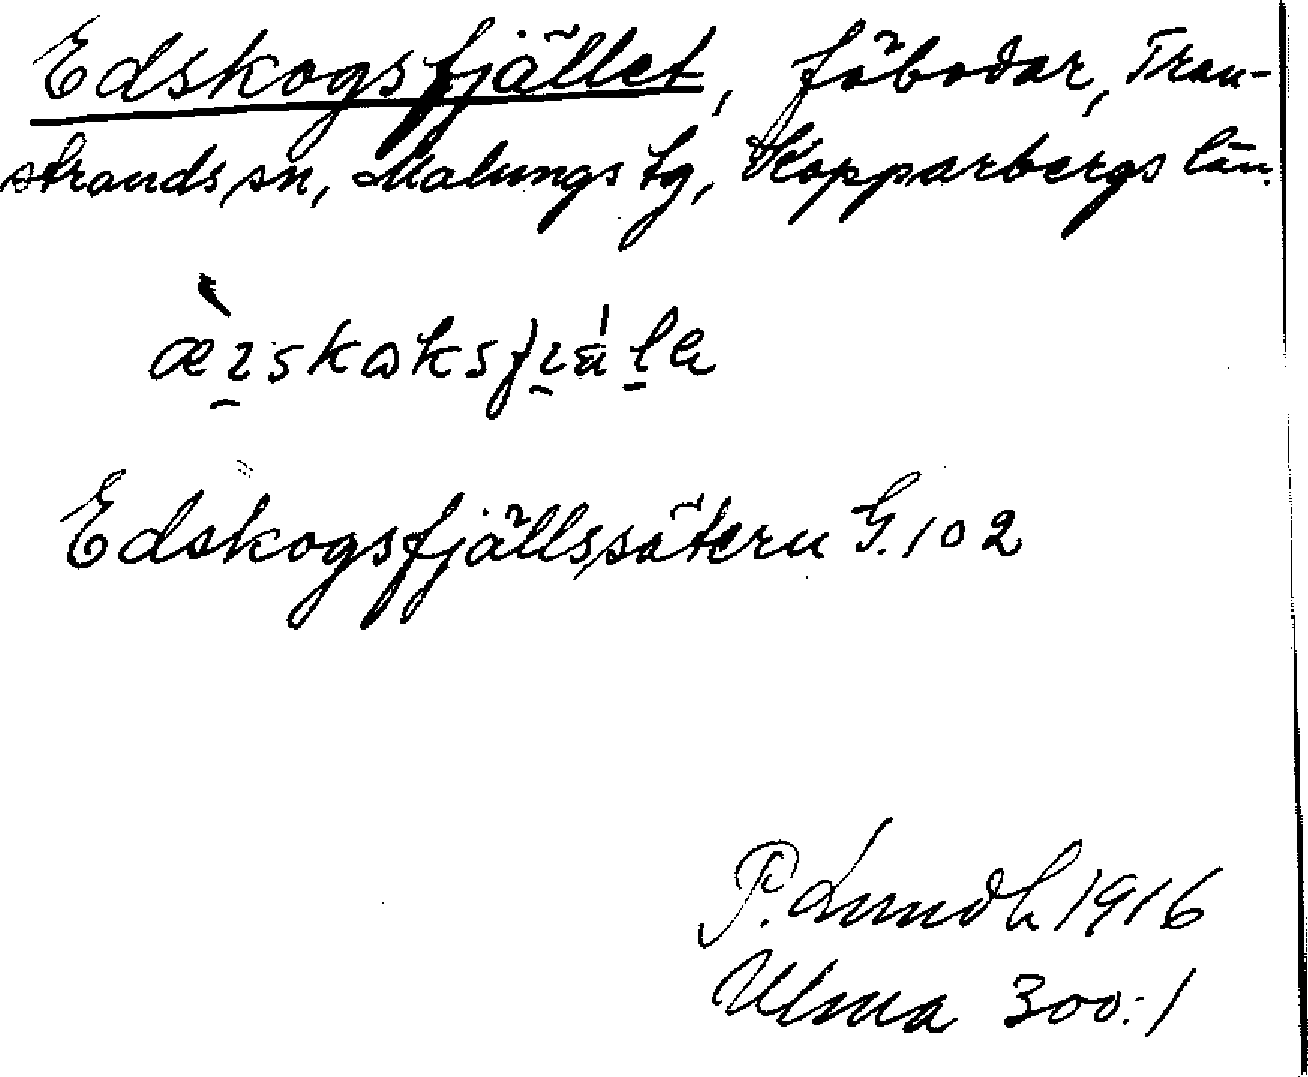 Edskogsfjället, fäbodar, Tran-
strands sn, Malungs tg, Kopparbergs län.
Edskogsfjällssätern G. 102
P. Lundh 1916
Ulma 300:1